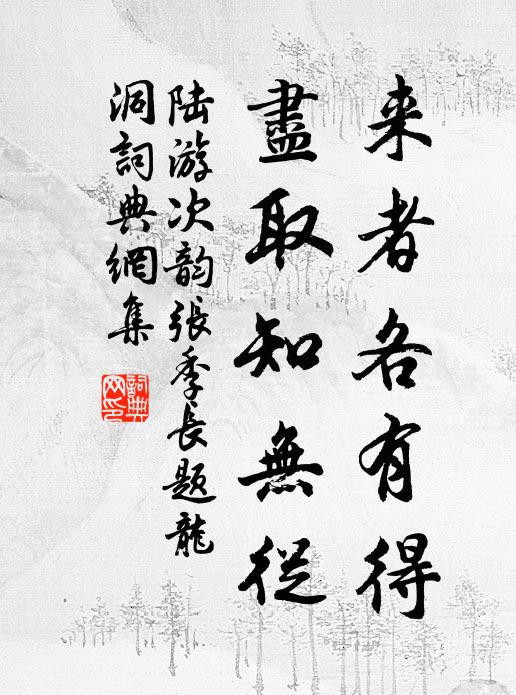 来者各有得
盡取知無從
陆游次韵張季長题龍
洞詞典網集
詞典
网印